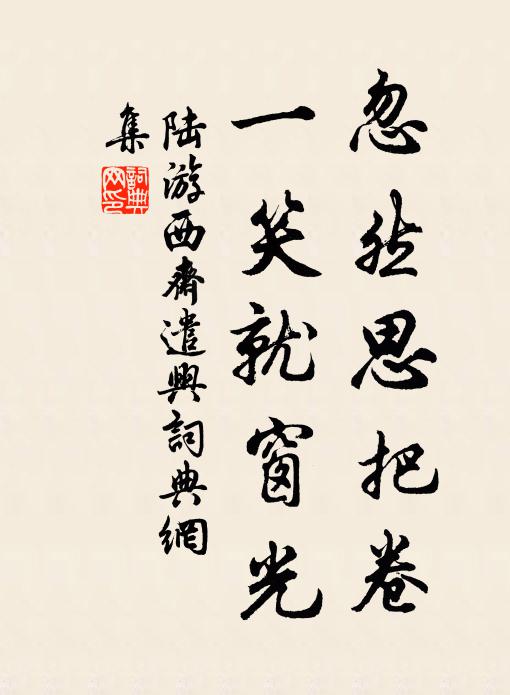 忽然思把卷
一笑就窗光
陆游西齋遣興詞典網
集
詞典網印